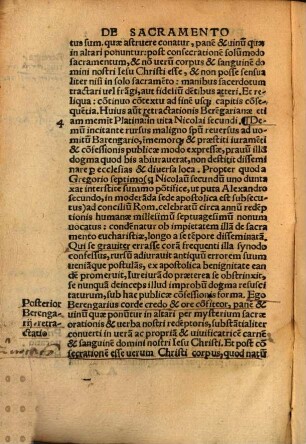 DE SACRAMENTO
tus sum. quæ astruere conatur, panē & uinū quæ
in altari ponuntur: post consecrationē solūmodo
sacramentum, & nō verū corpus & sanguinē domini
nostri Iesu Christi esse, & non posse sensualiter
nisi in solo sacramēto: manibus sacerdotum
tractari uel frāgi, aut fideliū dētibus atteri, Et reliqua:
cōtinuo cōtextu ad usq; capitis cōseq̄uētia.
Huius aūt retractationis Berēgarianæ etiam
memīt Platina in uita Nicolai secundi. ¶ Demū
incitante rursus maligno spū reuersus ad uomitū
Berengario, immemor q; & præstiti iuramēti
& cōfessionis publice modo expressæ, prauū illud
dogma quod bis abiurauerat, non destitit disseminare
p ecclesias & diuersa loca. Propter quod a
Gregorio septimo, q Nicolaū secundū uno duntaxat
interstite summo pōtifice, ut puta Alexandro
secundo, in moderāda sede apostolica est subsecutus
ad conciliū Rom. celebratū circa annū redēptionis
humanæ millesimū septuagesimū nonum
uocatus: condēnatur ob impietatem illā de sacramento
eucharistiæ, longo a se tēpore disseminatā.
Qui se grauiter errasse corā frequenti illa synodo
confessus, rursū adiurauit antiqui errorem suum
ueniamq̄ue postulās, ex apostolica benignitate eandē
promeruit, Iureiurādo præterea se obstrinxit,
se nunquā deinceps illud improbū dogma resuscitaturum,
sub hac publicæ cōfessionis forma. Ego
Berengarius corde credo & ore cōfiteor, panē &
uinū quæ ponūtur in altari per mysterium sacræ
orationis & uerba nostri redēptoris, substātialiter
conuerti in verā ac propriā & uiuificatricē carnē
& sanguinē domini nostri Iesu Christi. Et post cōsecrationē
esse uerum Christi corpus, quod natū
4
Posterior
Berengarij
retractatio